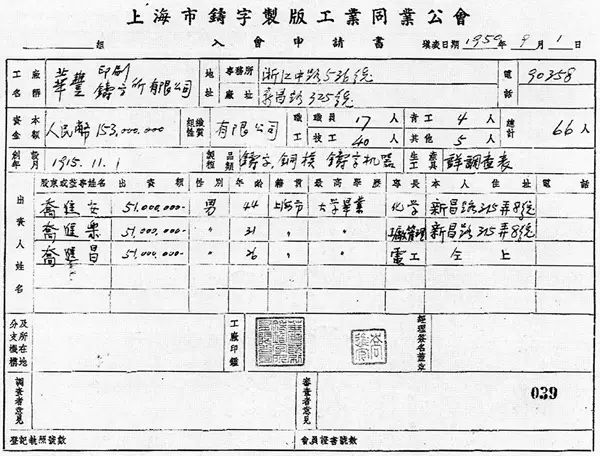 上海市鑄字製版工業同業公會
組 入會申請書 填表日期 1950年9月1日
工廠名稱 華豐印刷鑄字所有限公司 地址 事務所 浙江中路536號 電話 90358
廠址 新昌路325號
資本金額 人民幣 153,000,000 組織性質 有限公司 職職員工 職員 17人 青工 4人 總計 66人
技工 40人 其他 5人
創設年月 1915.11.1 製造品類 鑄字，銅模 鑄字机器 生產工具 詳調查表
出資人姓名 股東或董事姓名 出資額 性別 年齡 籍貫 最高學歷 專長 本人住址 電話
喬進安 51,000,000- 男 44 上海市 大学畢業 化学 新昌路325弄8號
喬進衆 51,000,000- 〃 31 〃 〃 工廠管理 新昌路325弄8號
喬進昌 51,000,000- 〃 26 〃 〃 電工 仝上
分支機構及所在地 工廠印鑑 經理簽名蓋章
調查者意見 審查者意見 039
登記執照號數 會員證書號數